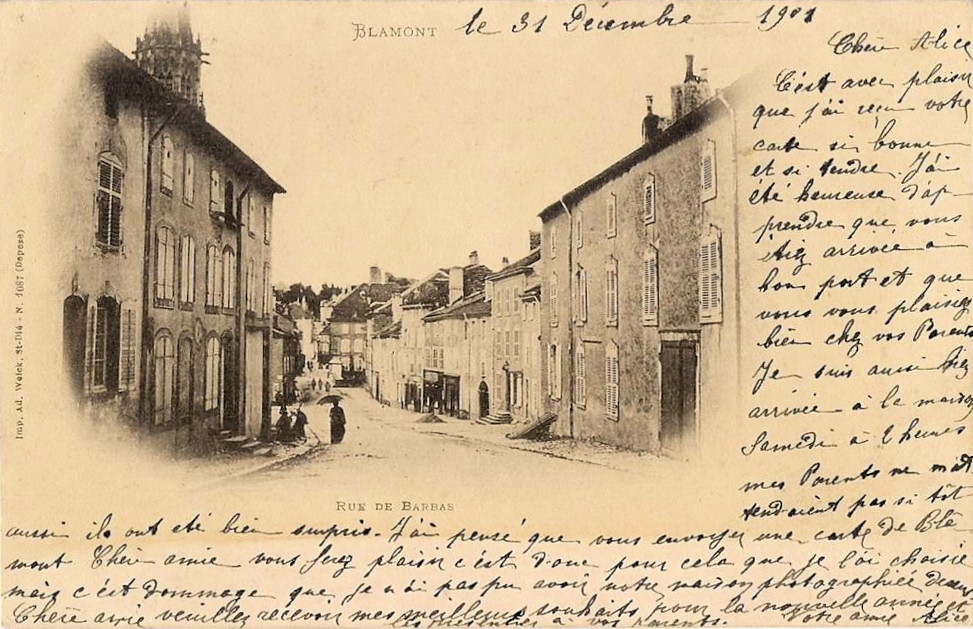 BLAMONT
le 31 Décembre 1901
Chère Alice
C'est avec plaisir
que j'ai reçu votre
carte si bonne
et si tendre. J'ai
été heureuse d'ap
prendre que vous
étiez arrivée à
bon port et que
vous vous plaisiez
bien chez vos Parents
Je suis aussi bien
arrivée à la maison
Samedi à 2 heures
mes Parents ne m'at
tendaient pas si tôt
aussi ils ont été bien surpris. J'ai pensé que vous envoyer une carte de Blâ
mont Chère amie vous ferez plaisir c'est donc pour cela que je l'ai choisie
mais c'est dommage que je n'ai pas pu avoir notre maison photographiée dessus
Chère amie veuillez recevoir mes meilleurs souhaits pour la nouvelle année et
les présenter à vos Parents. Votre amie Alice
RUE DE BARBAS
Imp. Ad. Weick, St-Dié - N. 1087 (Déposé)